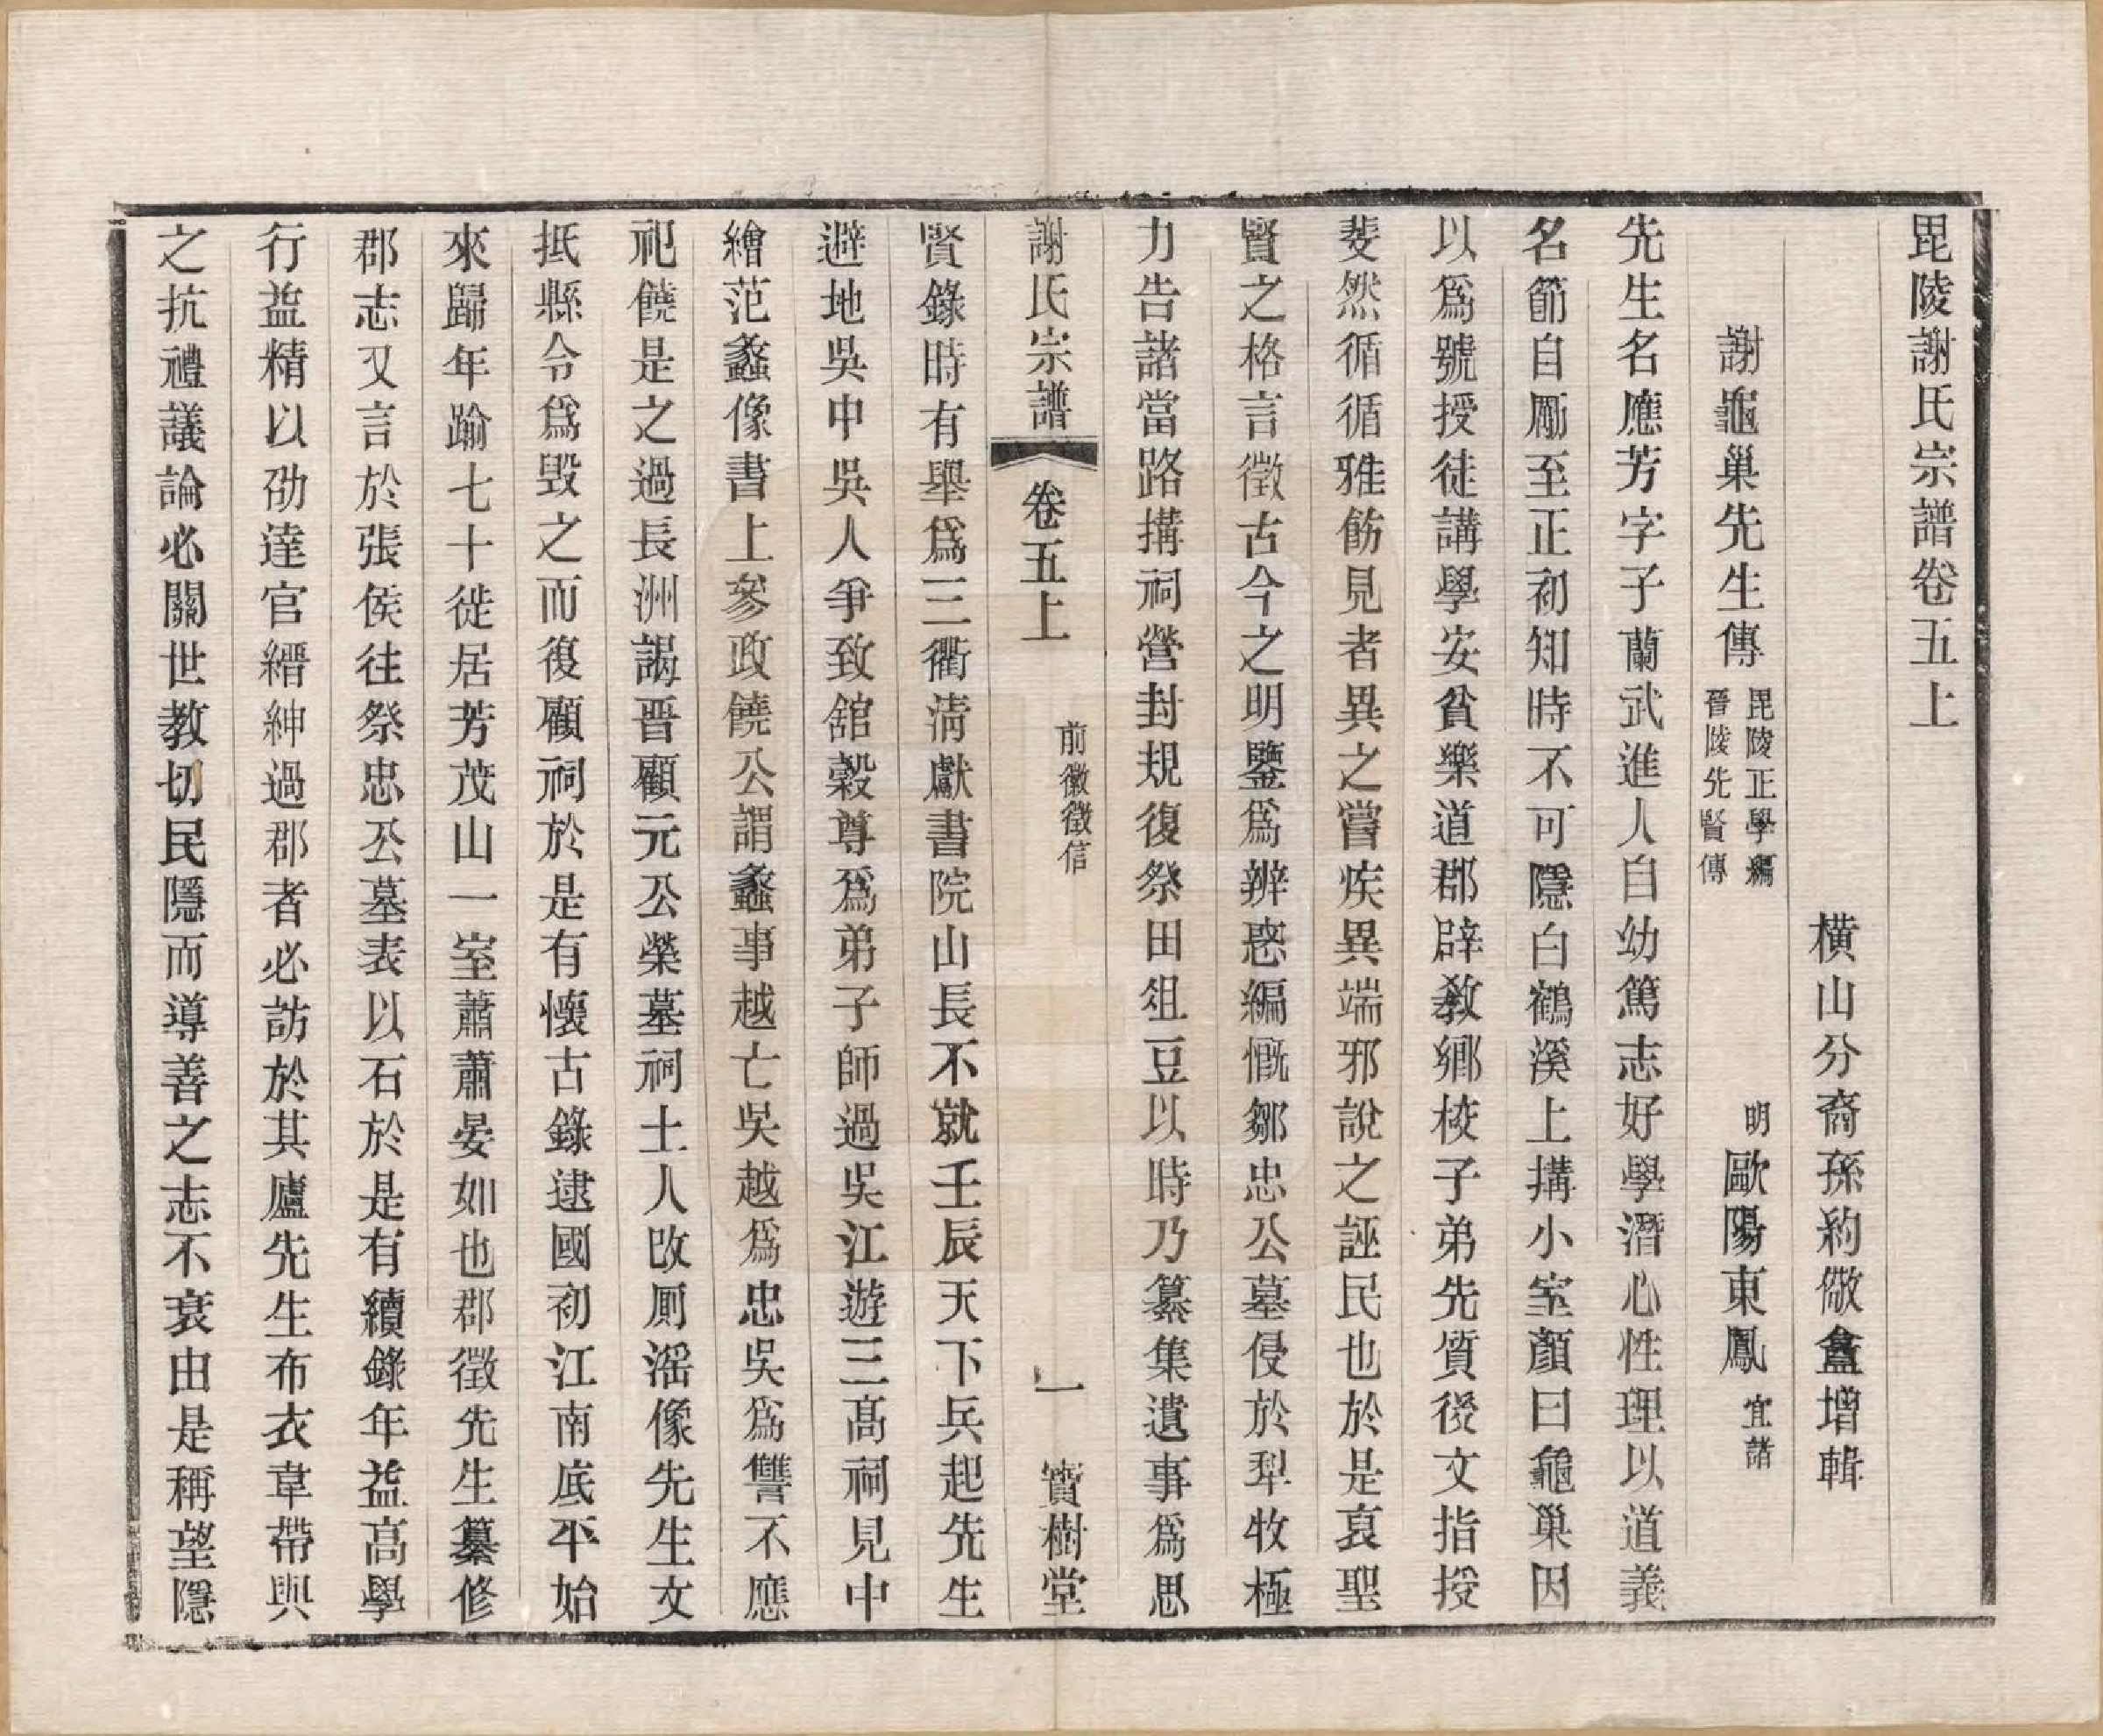 毘陵謝氏宗譜卷五上
橫山分裔孫約儆盦增輯
謝龜巢先生傳 毘陵正學編 晉陵先賢傳 明 歐陽東鳳 宜諸
先生名應芳字子蘭武進人自幼篤志好學潛心性理以道義
名節自勵至正初知時不可隱白鶴溪上搆小室顏曰龜巢因
以爲號授徒講學安貧樂道郡辟敎鄉校子弟先質後文指授
斐然循循雅飭見者異之嘗疾異端邪說之誣民也於是裒聖
賢之格言徵古今之明鑒爲辨惑編慨鄒忠公墓侵於犁牧極
力告諸當路搆祠營封規復祭田俎豆以時乃纂集遺事爲思
謝氏宗譜 卷五上 前徽徵信 一 寶樹堂
賢錄時有舉爲三衢淸獻書院山長不就壬辰天下兵起先生
避地吳中吳人爭致舘穀尊爲弟子師過吳江遊三高祠見中
繪范蠡像書上參政饒公謂蠡事越亡吳越爲忠吳爲讐不應
祀饒是之過長洲謁晋顧元公榮墓祠土人改厠滛像先生文
抵縣令爲毀之而復顧祠於是有懷古錄逮國初江南底平始
來歸年踰七十徙居芳茂山一室蕭蕭晏如也郡徵先生纂修
郡志又言於張侯往祭忠公墓表以石於是有續錄年益高學
行益精以劭達官縉紳過郡者必訪於其廬先生布衣韋帶與
之抗禮議論必關世教切民隱而導善之志不衰由是稱望隱